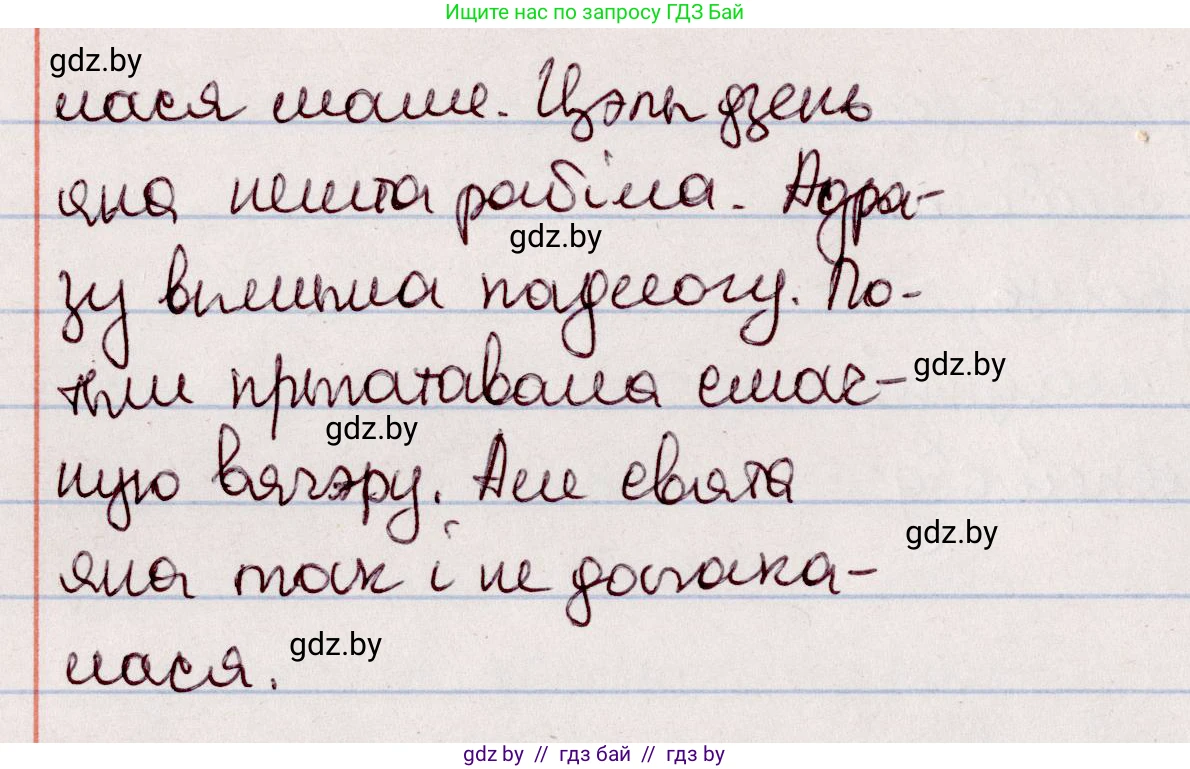 Ищите нас по запросу ГДЗ Бай
gdz.by
лася маме. Цэлы дзень
яна нешта рабіла. Адра-
gdz.by
зу вымыла падлогу. По-
тым прыгатавала смач- gdz.by
gdz.by
ную вячэру. Але свята
gdz.by
яна так і не дачака-
лася. gdz.by
gdz by // гдз бай // гдз by